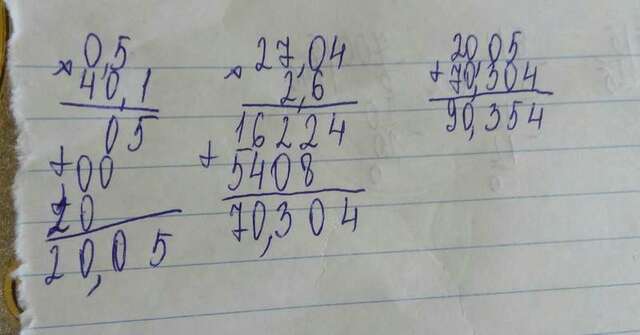 × 0,5
40,1
05
+ 00
20
20,05
× 27,04
2,6
16224
+ 5408
70,304
20 05
+ 70,304
90,354